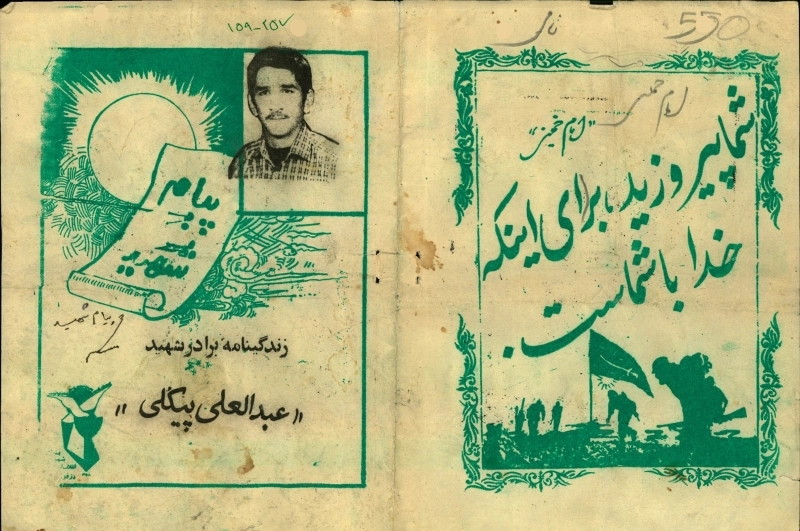 نامی
550
امام خمینی
«امام خمینی»
شما پیروزید، برای اینکه
خدا با شماست.
۱۵۹-۲۵۷
پیام
شهید
پیام شهید
زندگینامه برادر شهید
«عبدالعلی پیکلی»